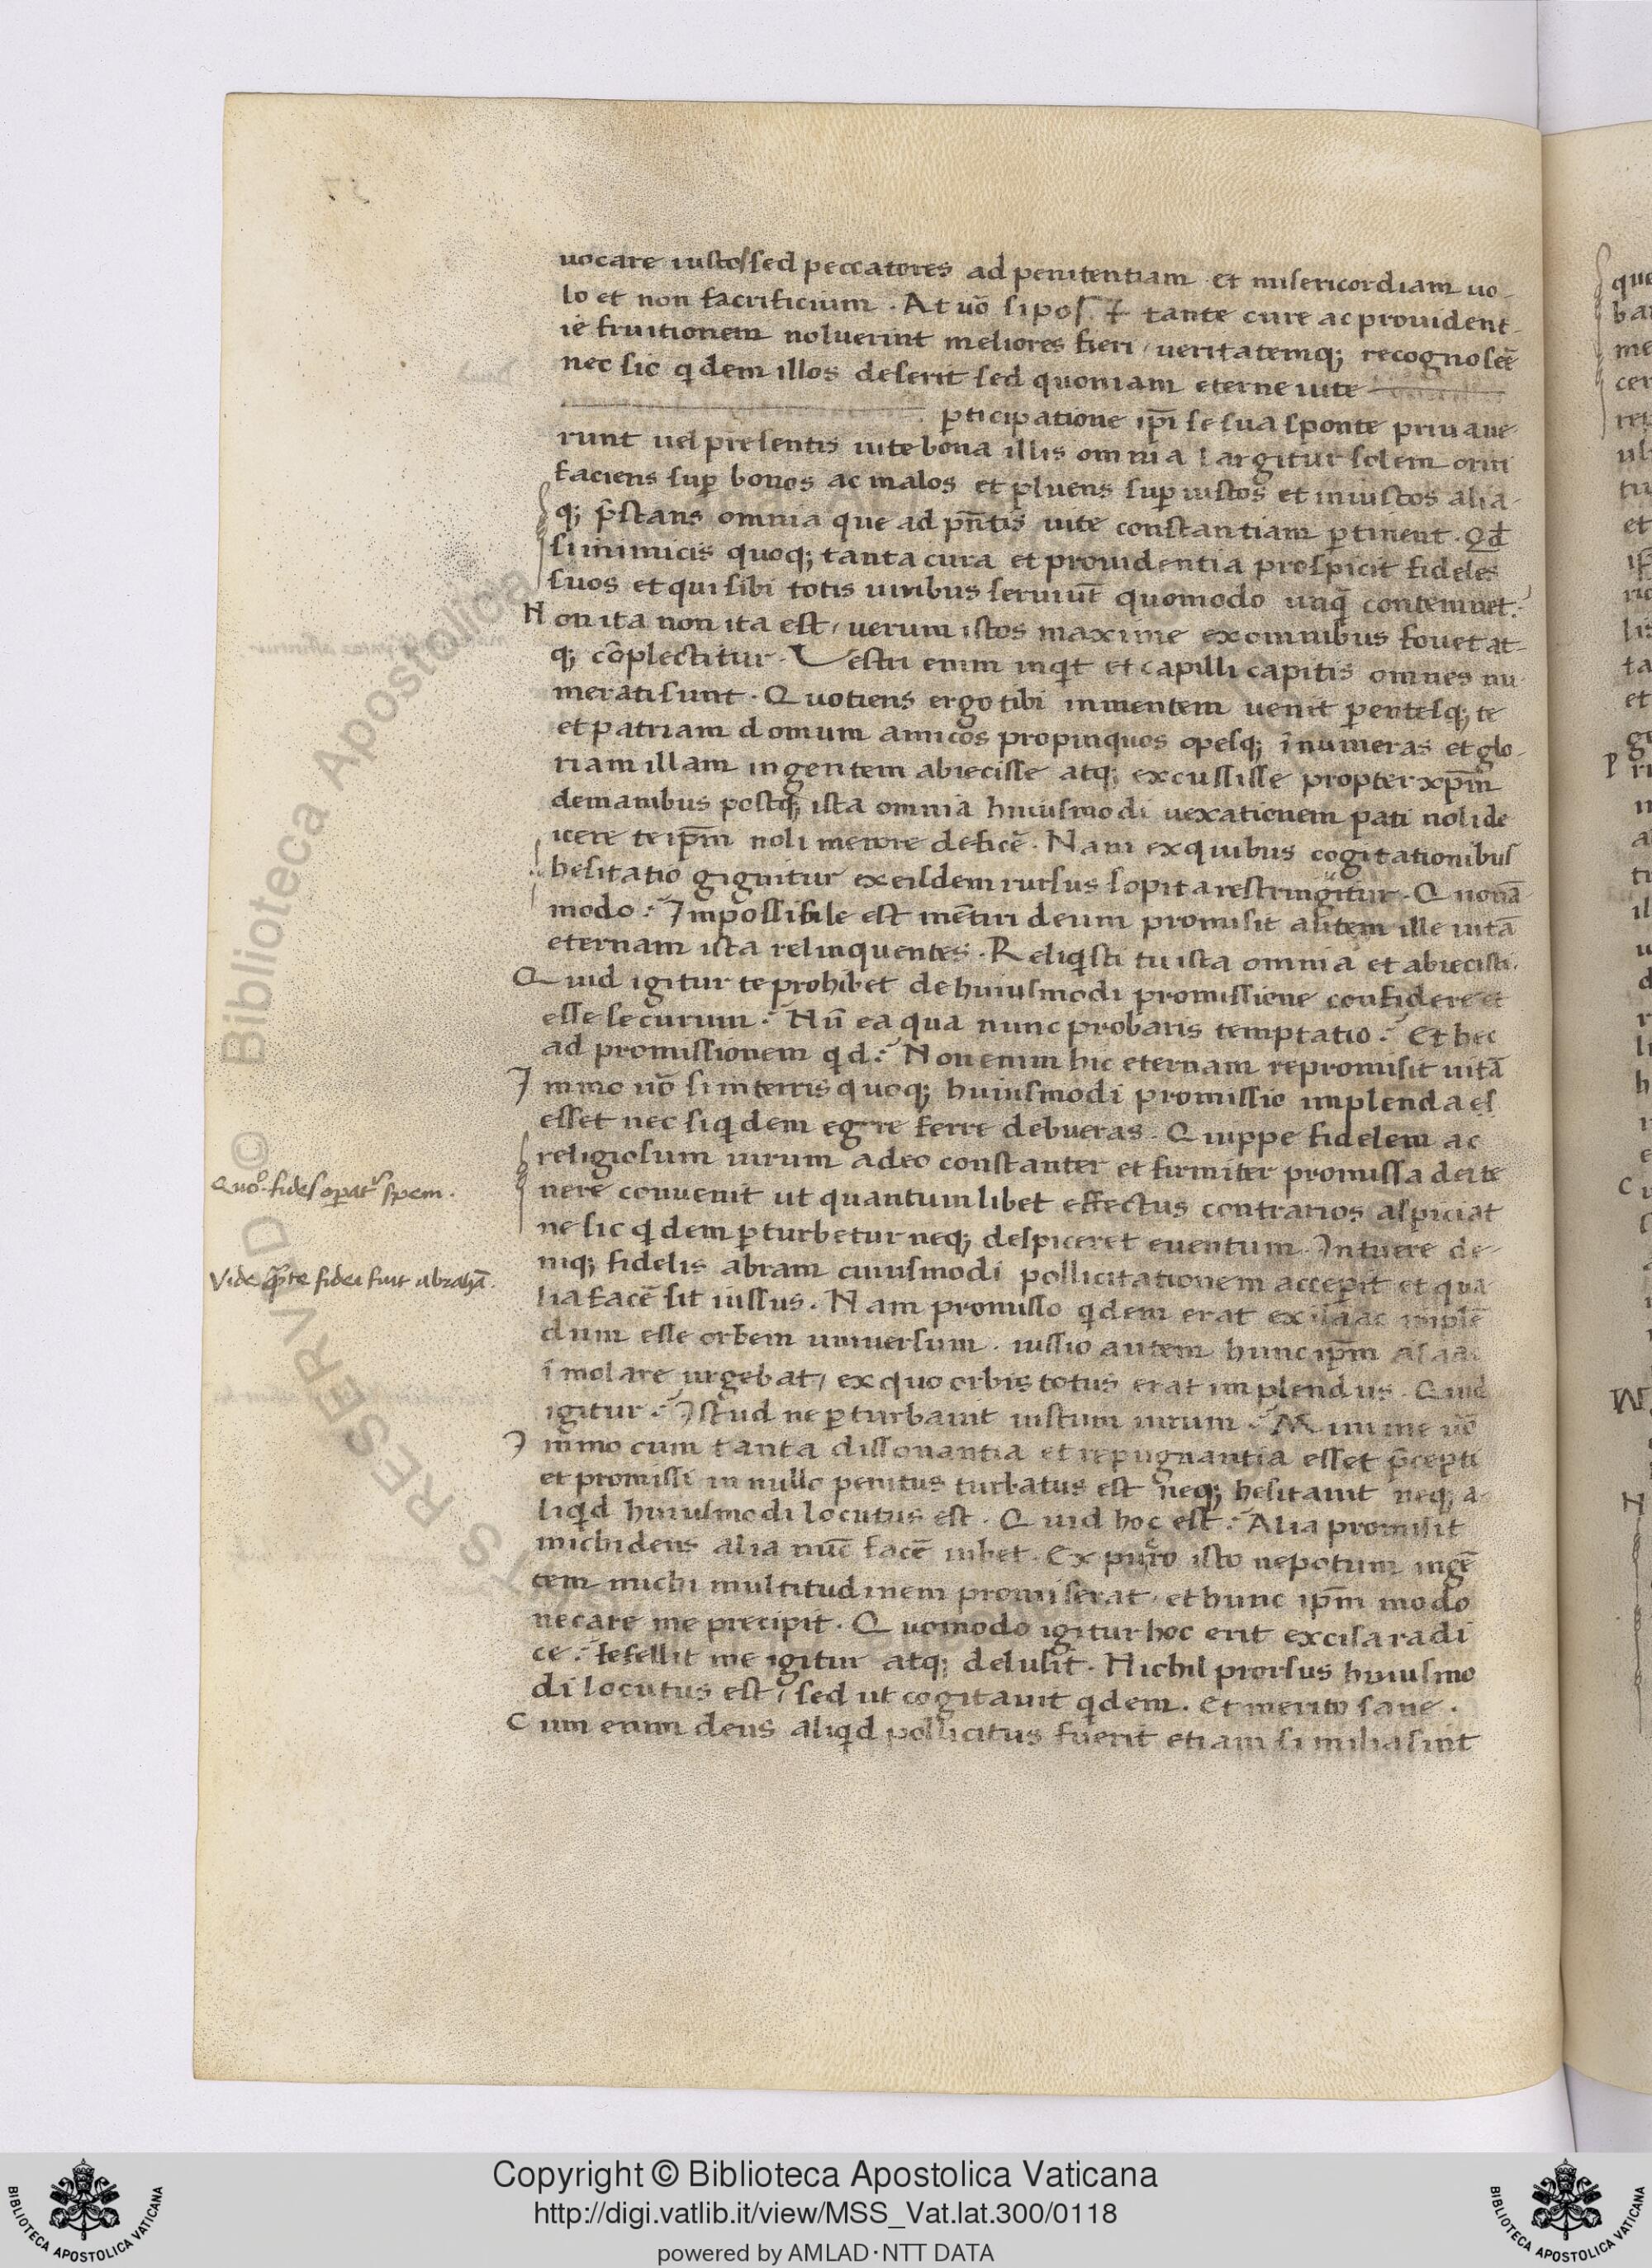 uocare iustos sed peccatores ad penitentiam et misericordiam uo-
lo et non sacrificium. At uō si pos t tante cure ac prouident-
ie fruitionem noluerint meliores fieri, ueritatemq; recognoscē
nec sic qdem illos deserit sed quoniam eterne uite
pticipatione ip̄i se sua sponte priuaue-
runt uel presentis uite bona illis omnia largitur solem oriri
faciens sup bonos ac malos et pluens sup iustos et iniustos alia-
q; p̄stans omnia que ad pn̄tis uite constantiam ptinent. Qd
si inimicis quoq; tanta cura et prouidentia prospicit fideles
suos et qui sibi totis uiribus seruiūt quomodo unq̄ contemnet?
Non ita non ita est, uerum istos maxime ex omnibus fouet at-
q; cōplectitur. Vestri enim inqt et capilli capitis omnes nu-
merati sunt. Quotiens ergo tibi in mentem uenit parentesq; te
et patriam domum amicos propinquos opesq; īnumeras et glo-
riam illam ingentem abiecisse atq; excussisse propter xp̄m
de manibus postq; ista omnia huiusmodi uexationem pati noli de
icere te ip̄m noli merore deficē. Nam ex quibus cogitationibus
hesitatio gignitur ex eisdem rursus sopita restringitur. Quonā
modo? Impossibile est mētiri deum promisit autem ille uitā
eternam ista relinquentes. Reliqsti tu ista omnia et abiecisti.
Quid igitur te prohibet de huiusmodi promissione confidere et
esse securum? Nū ea qua nunc probaris temptatio? Et hec
ad promissionem qd? Non enim hic eternam repromisit uitā
Immo uō si in terris quoq; huiusmodi promissio implenda es
esset nec siqdem egre ferre debueras. Quippe fidelem ac
religiosum uirum adeo constanter et firmiter promissa dei te
nere conuenit ut quantumlibet effectus contrarios aspiciat
ne sic qdem pturbetur neq; despiceret euentum. Intuere de-
niq; fidelis abram cuiusmodi pollicitationem acceperit et qua
lia facē sit iussus. Nam promisso qdem erat ex isaac implē
dum esse orbem uniuersum. iussio autem hunc ip̄m
īmolare urgebat, ex quo orbis totus erat implendus. Quid
igitur? Istud ne pturbauit iustum uirum? Minime uō
Immo cum tanta dissonantia et repugnantia esset p̄cepti
et promissi in nullo penitus turbatus est neq; hesitauit neq; a-
liqd huiusmodi locutus est. Quid hoc est? Alia promisit
michi deus alia nūc facē iubet. Ex puero isto nepotum ingē
tem michi multitudinem promiserat, et hunc ip̄m modo
necare me precipit. Quomodo igitur hoc erit excisa radi
ce? fefellit me igitur atq; delusit. Nichil prorsus huiusmo
di locutus est, sed ut cogitauit qdem. Et merito sane.
Cum enim deus aliqd pollicitus fuerit etiam si milia sint
Quō fides opat spem.
Vide q̄nte fidei fuit abrahā.
© Biblioteca Apostolica
RESERVED
Copyright © Biblioteca Apostolica Vaticana
http://digi.vatlib.it/view/MSS_Vat.lat.300/0118
powered by AMLAD·NTT DATA
BIBLIOTECA APOSTOLICA VATICANA
BIBLIOTECA APOSTOLICA VATICANA